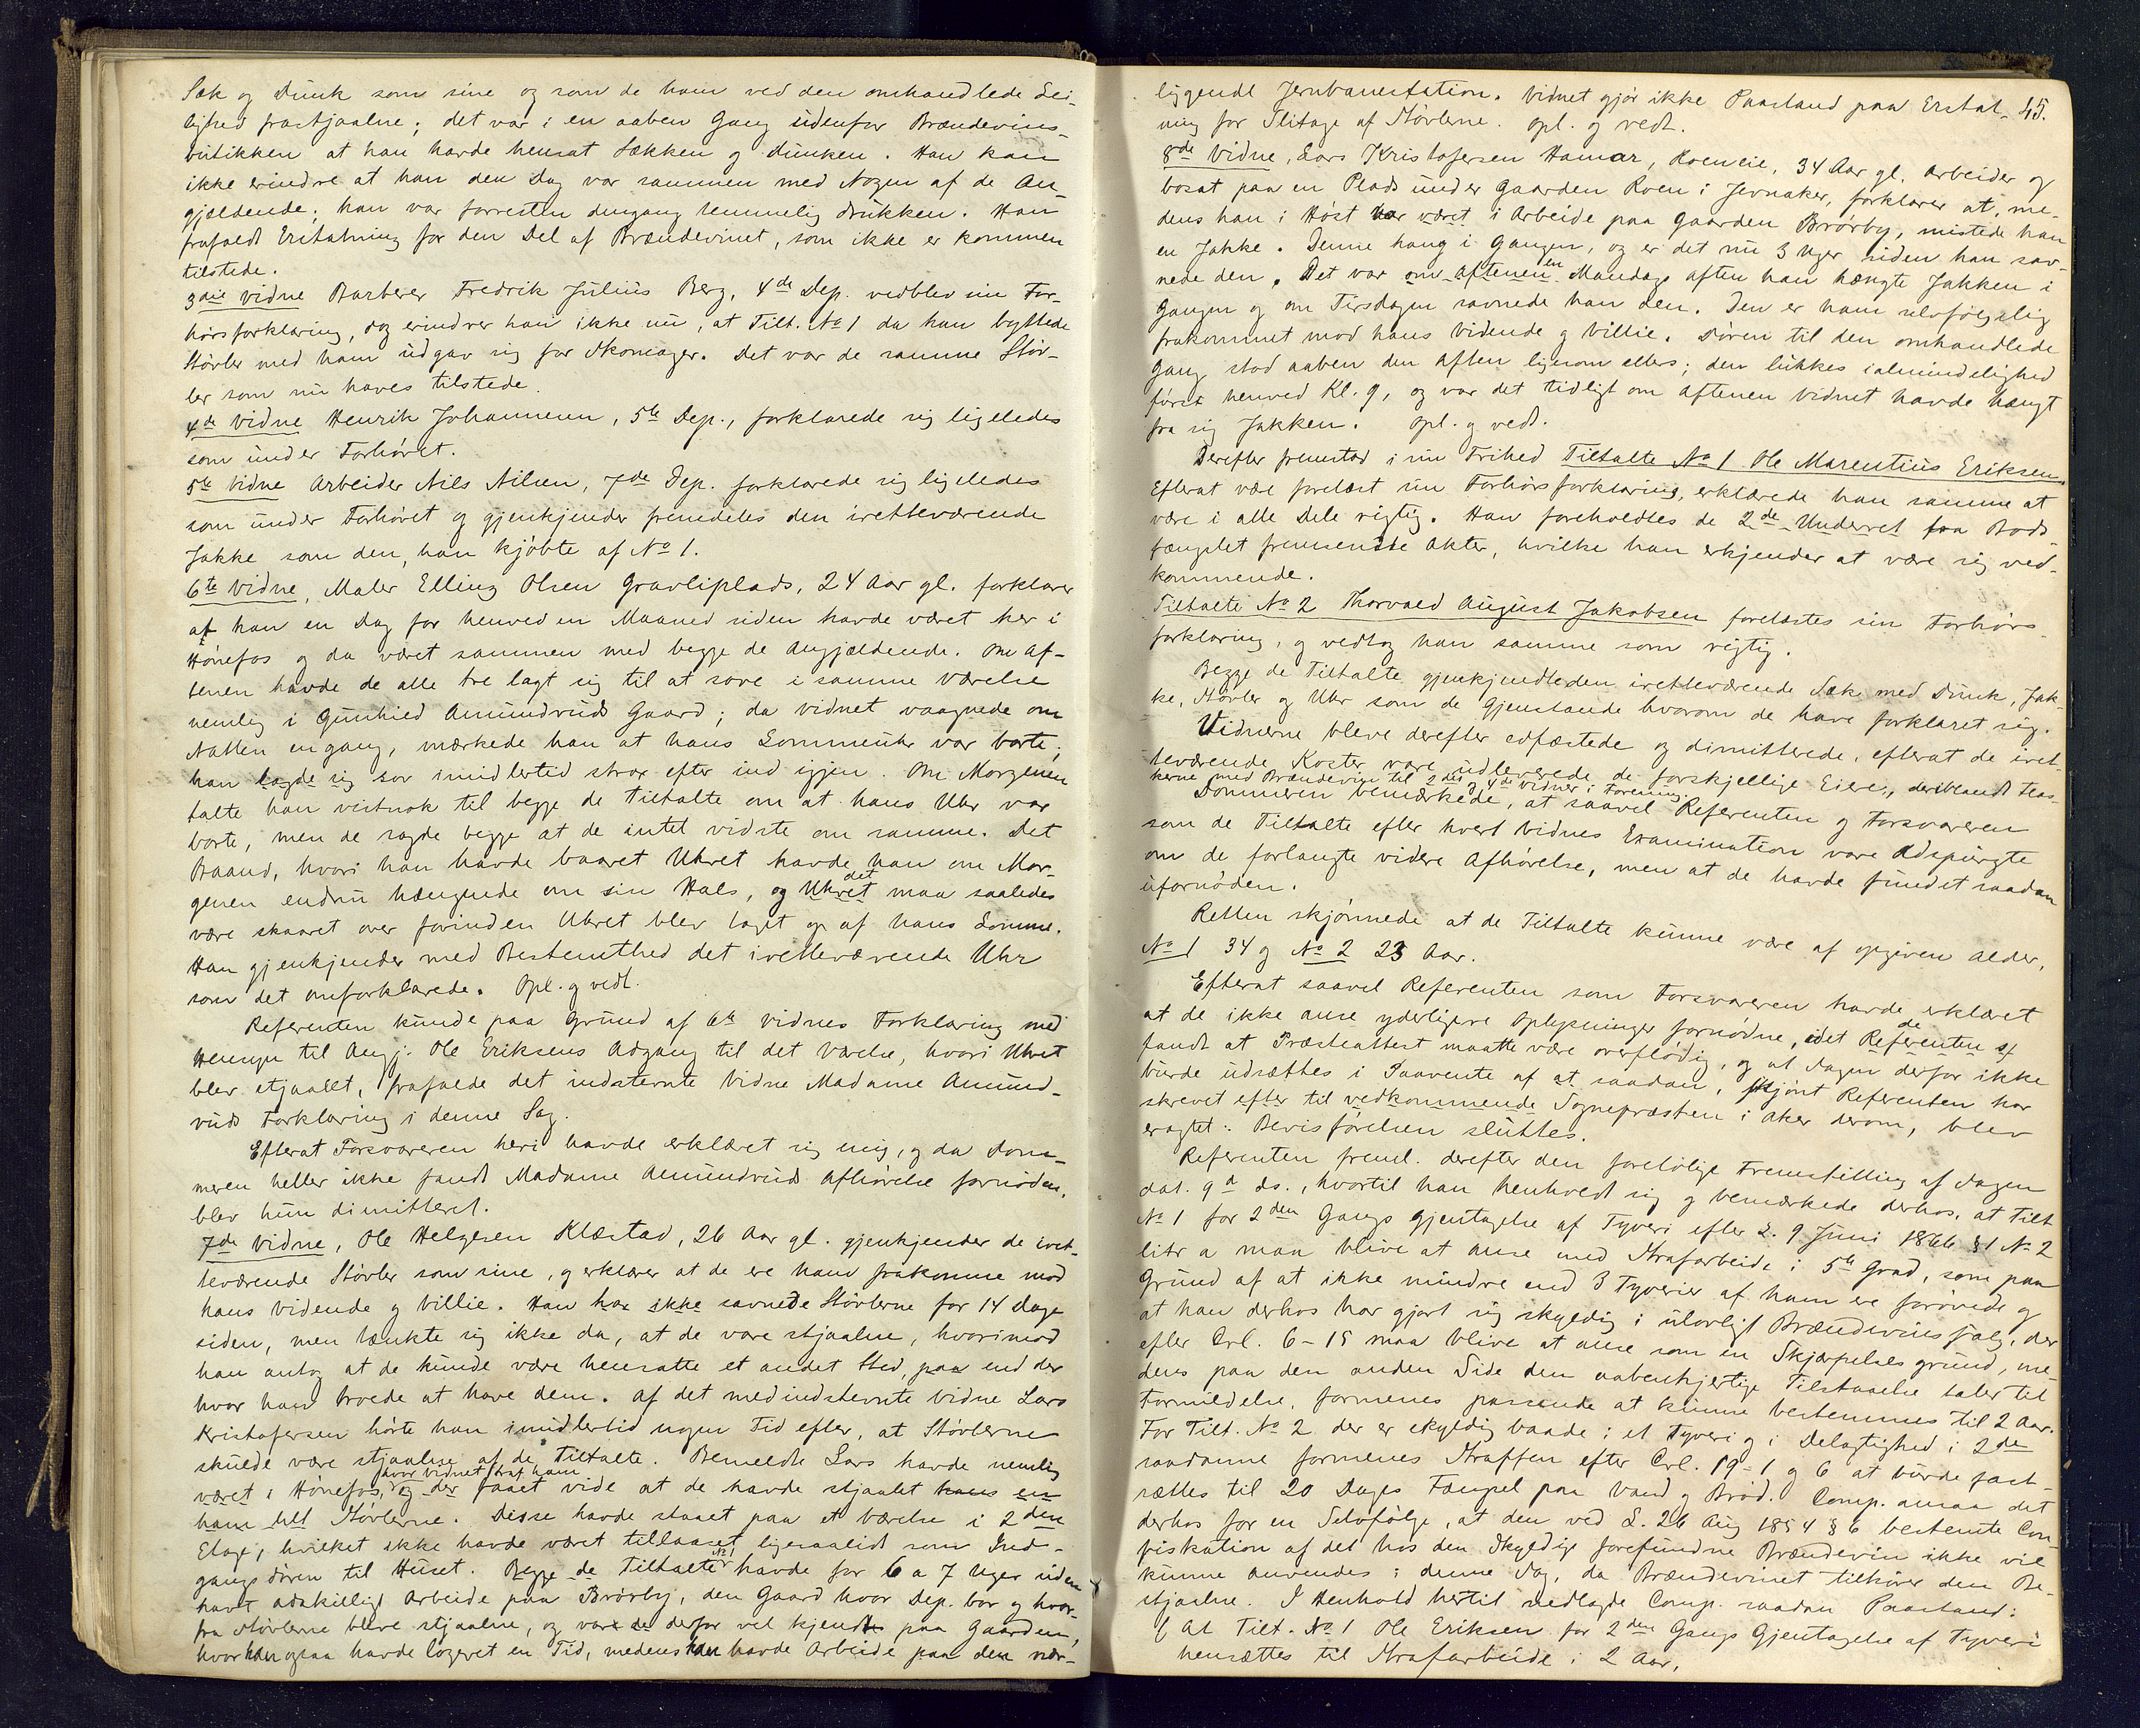 Sæk og Dunk som sine og som de ham ved den omhandlede Lei-
lighed frastjaalne; det var i en aaben Gang udenfor Brændevins-
butikken at han havde hensat Sækken og Dunken. Han kan
ikke erindre at han den Dag var sammen med Nogen af de An-
gjældende; han var forresten dengang temmelig drukken. Han
frafaldt Erstatning for den Del af Brændevinet, som ikke er kommen
tilstede.
3die Vidne Barberer Fredrik Julius Berg, 4de Dep. vedblev sin For-
hørsforklaring, dog erindrer han ikke nu, at Tilt. No 1 da han byttede
Støvler med ham udgav sig for Skomager. Det var de samme Støv-
ler som nu haves tilstede.
4de Vidne Henrik Johannesen, 5te Dep., forklarede sig ligeledes
som under Forhøret.
5te Vidne Arbeider Nils Nilsen, 7de Dep. forklarede sig ligeledes
som under Forhøret og gjenkjender fremdeles den iretteværende
Jakke som den, han kjøbte af No 1.
6te Vidne, Maler Elling Olsen Gravliplads, 24 Aar gl. forklarer
at han en Dag for henved en Maaned siden havde været her i
Hønefos og da været sammen med begge de Angjældende. Om Af-
tenen havde de alle tre lagt sig til at sove i samme Værelse
nemlig i Gunhild Amundruds Gaard; da Vidnet vaagnede om
Natten engang, mærkede han at hans Lommeuhr var borte;
han lagde sig sov imidlertid strax efter ind igjen. Om Morgenen
talte han vistnok til begge de Tiltalte om at hans Uhr var
borte, men de sagde begge at de intet vidste om samme. Det
Baand, hvori han havde baaret Uhret havde han om Mor-
genen endnu hængende om sin Hals, og Uhret det maa saaledes
være skaaret over forinden Uhret blev taget op af hans Lomme.
Han gjenkjender med Bestemthed det iretteværende Uhr
som det omforklarede. Opl. og vedt.
Referenten kunde paa Grund af 6te Vidnes Forklaring med
Hensyn til Angj. Ole Eriksens Adgang til det Værelse, hvori Uhret
blev stjaalet, frafalde det indstevnte Vidne Madame Amund-
ruds Forklaring i denne Sag.
Efterat Forsvareren heri havde erklæret sig enig, og da Dom-
meren heller ikke fandt Madame Amundruds Afhørelse fornøden,
blev hun dimitteret.
7de Vidne, Ole Helgesen Klæstad, 26 Aar gl. gjenkjender de iret-
teværende Støvler som sine, og erklærer at de ere ham frakomne mod
hans Vidende og Villie. Han har ikke savnede Støvlerne for 14 Dage
siden, men tænkte sig ikke da, at de vare stjaalne, hvorimod
han antog at de kunde være hensatte et andet Sted, paa end der
hvor han troede at have dem. Af det medindstevnte Vidne Lars
Kristofersen hørte han imidlertid nogen Tid efter, at Støvlerne
skulde være stjaalne af de Tiltalte. Bemeldte Lars havde nemlig
været i Hønefos, hvor Vidnet traf ham og der faaet vide at de havde stjaalet hans en
ham till Støvlerne. Disse havde staaet paa et Værelse i 2den
Etage, hvilket ikke havde været tillaaset ligesaalidt som Ind-
gangsdøren til Huset. Begge de Tiltalte No 1 havde for 6 a 7 Uger siden
havt adskilligt Arbeide paa Brørby, den Gaard hvor Dep. bor og hvor-
fra Støvlerne bleve stjaalne, og vare de derfor vel kjendte paa Gaarden,
hvor han ogsaa havde logeret en Tid, medens han havde Arbeide paa den nær-
liggende Jernbanestation. Vidnet gjør ikke Paastand paa Erstat-
45.
ning for Slitage af Støvlerne. Opl. og vedt.
8de Vidne, Lars Kristofersen Hamar, Roeneie, 34 Aar gl. Arbeider og
bosat paa en Plads under Gaarden Roen i Jevnaker, forklarer at, me-
dens han i Høst har været i Arbeide paa Gaarden Brørby, mistede han
en Jakke. Denne hang i Gangen, og er det nu 3 Uger siden han sav-
nede den. Det var om Aftenen en Mandags aften han hængte Jakken i
Gangen og om Tirsdagen savnede han den. Den er ham selvfølgelig
frakommet mod hans Vidende og Villie. Døren til den omhandlede
Gang stod aaben den Aften ligesom ellers; den lukkes i almindelighed
først henved Kl. 9, og var det tidligt om Aftenen Vidnet havde hængt
fra sig Jakken. Opl. og vedt.
Derefter fremstod i sin Frihed Tiltalte No 1 Ole Marentius Eriksen.
Efterat være forelæst sin Forhørsforklaring, erklærede han samme at
være i alle Dele rigtig. Han foreholdtes de 2de Underret fra Bods-
fængslet fremsendte Akter, hvilke han erkjender at være sig ved-
kommende.
Tiltalte No 2 Thorvald August Jakobsen forelæstes sin Forhørs-
forklaring, og vedtog han samme som rigtig.
Begge de Tiltalte gjenkjendte den iretteværende Sæk med Dunk, Jak-
ke, Støvler og Uhr som de Gjenstande hvorom de have forklaret sig.
Vidnerne bleve derefter edfæstede og dimitterede, efterat de iret-
teværende Koster vare udleverede de forskjellige Eiere, deriblandt Flas-
kerne med Brændevin til 2det og 4de Vidner i Forening.
Dommeren bemærkede, at saavel Referenten og Forsvareren
som de Tiltalte efter hvert Vidnes Examination vare adspurgte
om de forlangte videre Afhørelse, men at de havde fundet saadan
ufornøden.
Retten skjønnede at de Tiltalte kunne være af opgiven Alder,
No 1 34 og No 2 23 Aar.
Efterat saavel Referenten som Forsvareren havde erklæret
at de ikke anse yderligere Oplysninger fornødne, idet Referenten de
fandt at Præsteattest maatte være overflødig, og at Sagen derfor ikke
burde udsættes i Paavente af at saadan, skjønt Referenten har
skrevet efter til vedkommende Sognepræsten i Aker derom, blev
eragtet: Bevisførelsen sluttes.
Referenten freml. derefter den foreløbige Fremstilling af Sagen
dat. 9d ds., hvortil han henholdt sig og bemærkede derhos, at Tilt
No 1 for 2den Gangs Gjentagelse af Tyveri efter L. 9 Juni 1866 § 1 No 2
litr a maa blive at anse med Strafarbeide i 5te Grad, som paa
Grund af at ikke mindre end 3 Tyverier af ham ere forøvede og
at han derhos har gjort sig skyldig i ulovligt Brændevinssalg, der
efter Crl. 6-15 maa blive at anse som en Skjærpelsesgrund, me-
dens paa den anden Side den aabenhjertige Tilstaaelse taler til
Formildelse, formenes passende at kunne bestemmes til 2 Aar.
For Tilt. No 2 der er skyldig baade i et Tyveri og i Delagtighed i 2de
saadanne formenes Straffen efter Crl. 19-1 og 6 at burde fast-
sættes til 20 Dages Fængsel paa Vand og Brød. Comp. ansaa det
derhos for en Selvfølge, at den ved L. 26 Aug 1854 § 6 bestemte Con-
fiskation af det hos den Skyldige forefundne Brændevin ikke vil
kunne anvendes i denne Sag, da Brændevinet tilhører den Be-
stjaalne. I Henhold hertil nedlagde Comp. saadan Paastand:
At Tilt. No 1 Ole Eriksen for 2den Gangs Gjentagelse af Tyveri
hensættes til Strafarbeide i 2 Aar,